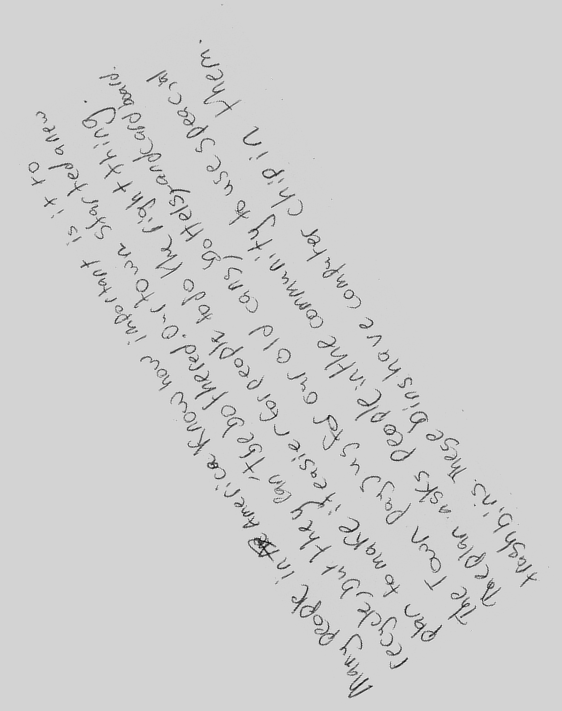 Many people in America know how important is it to
recycle, but they can't be bothered. Our town started a new
plan to make it easier for people to do the right thing.
The Town pays us for our old cans, bottels, and cardboard.
The plan asks people in the community to use speacial
trash bins. These bins have computer chip in them.